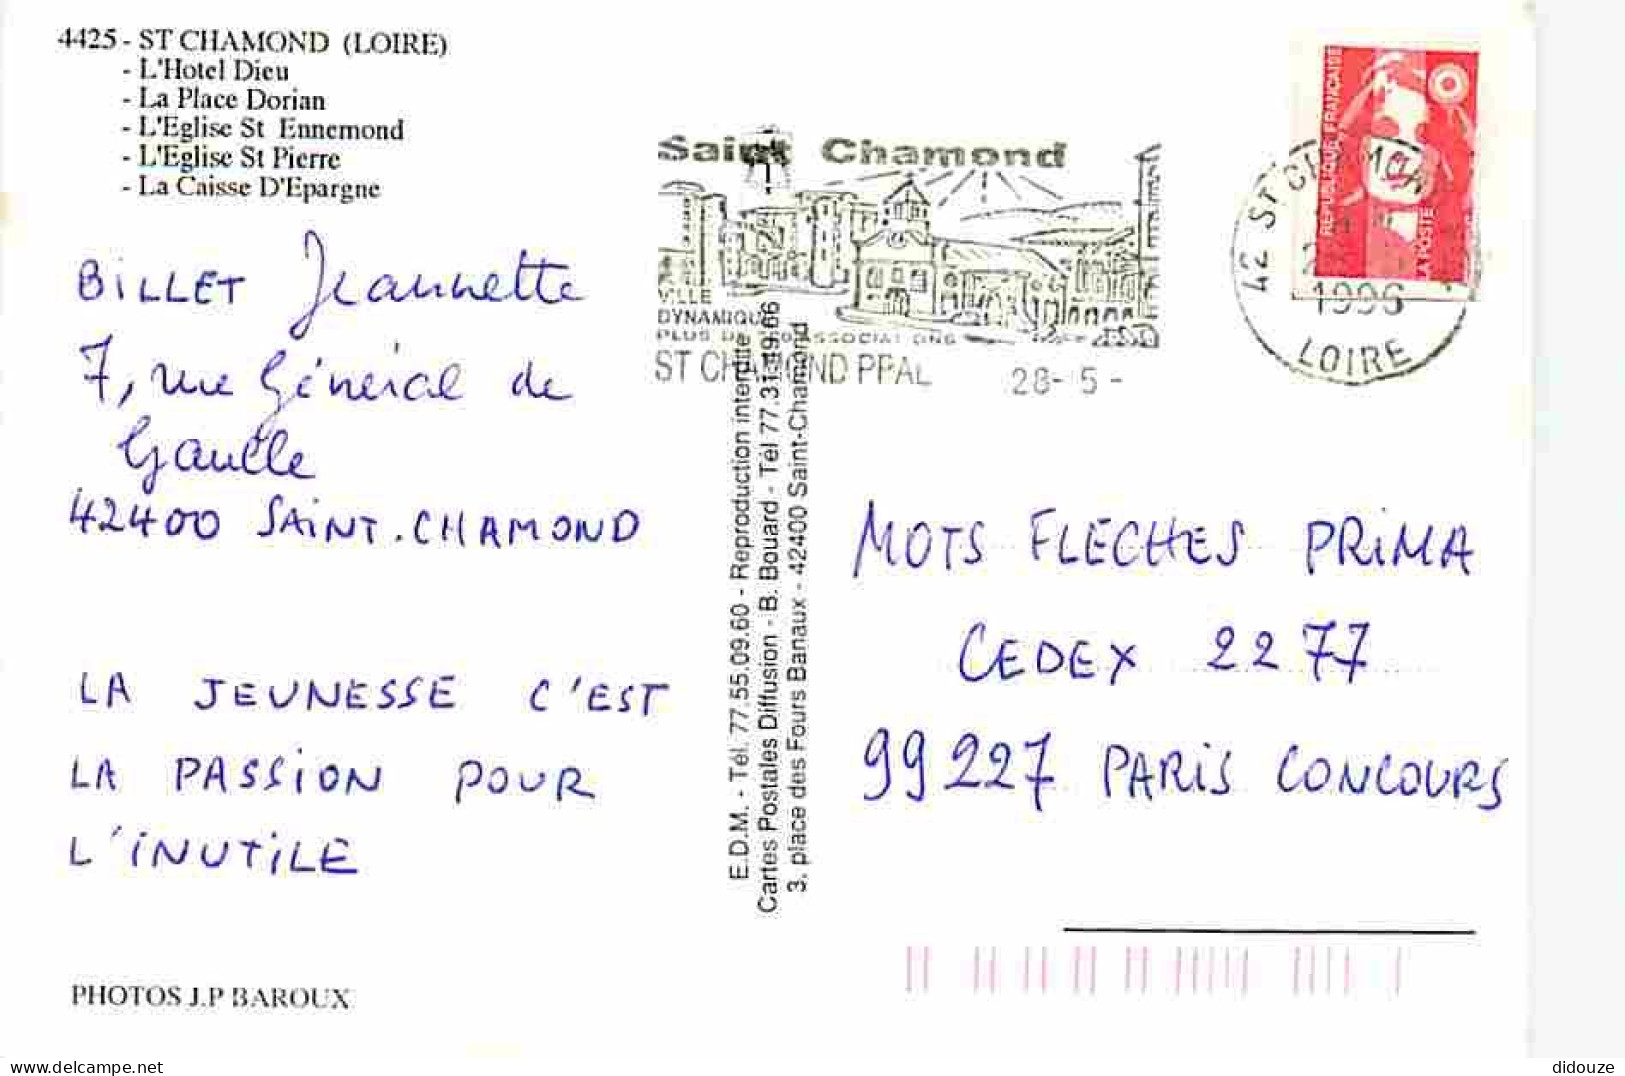 4425 - ST CHAMOND (LOIRE)
- L'Hotel Dieu
- La Place Dorian
- L'Eglise St Ennemond
- L'Eglise St Pierre
- La Caisse D'Epargne
BILLET Jeannette
7, rue Général de
Gaulle
42400 SAINT.CHAMOND
LA JEUNESSE C'EST
LA PASSION POUR
L'INUTILE
PHOTOS J.P BAROUX
E.D.M. - Tél. 77.55.09.60 - Reproduction interdite
Cartes Postales Diffusion - B. Bouard - Tél 77.31.49.66
3, place des Fours Banaux - 42400 Saint-Chamond
Saint Chamond
VILLE
DYNAMIQUE
PLUS DE ASSOCIATIONS
ST CHAMOND PPAL
28- 5 -
REPUBLIQUE FRANÇAISE
LA POSTE
42 ST CHAMOND
1996
LOIRE
MOTS FLECHES PRIMA
CEDEX 2277
99227 PARIS CONCOURS
didouze